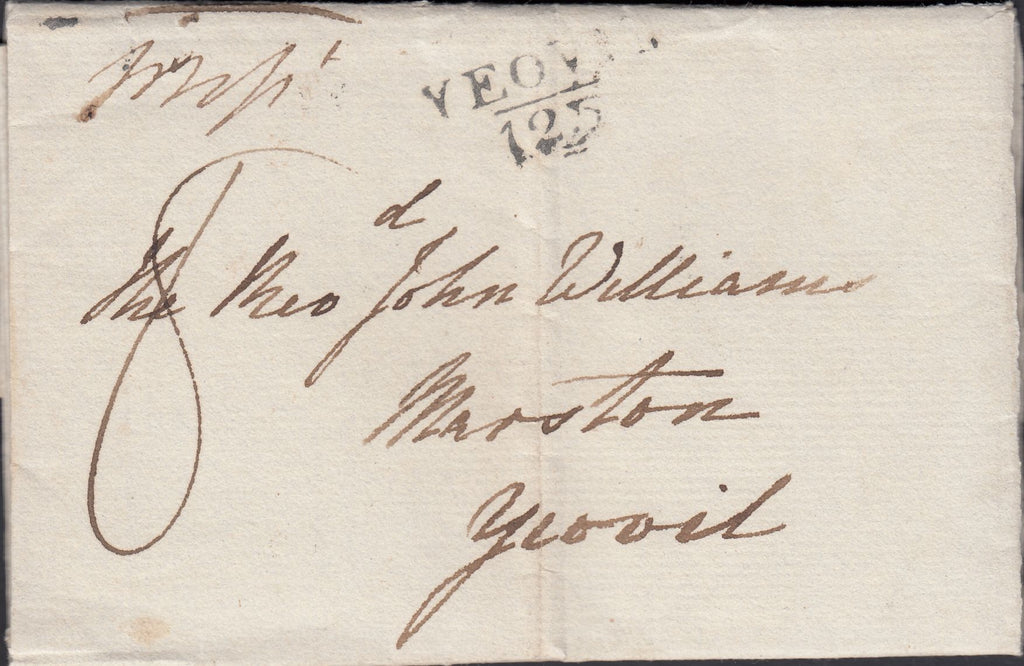 YEOVIL
125
8
The Revd John Williams
Marston
Yeovil